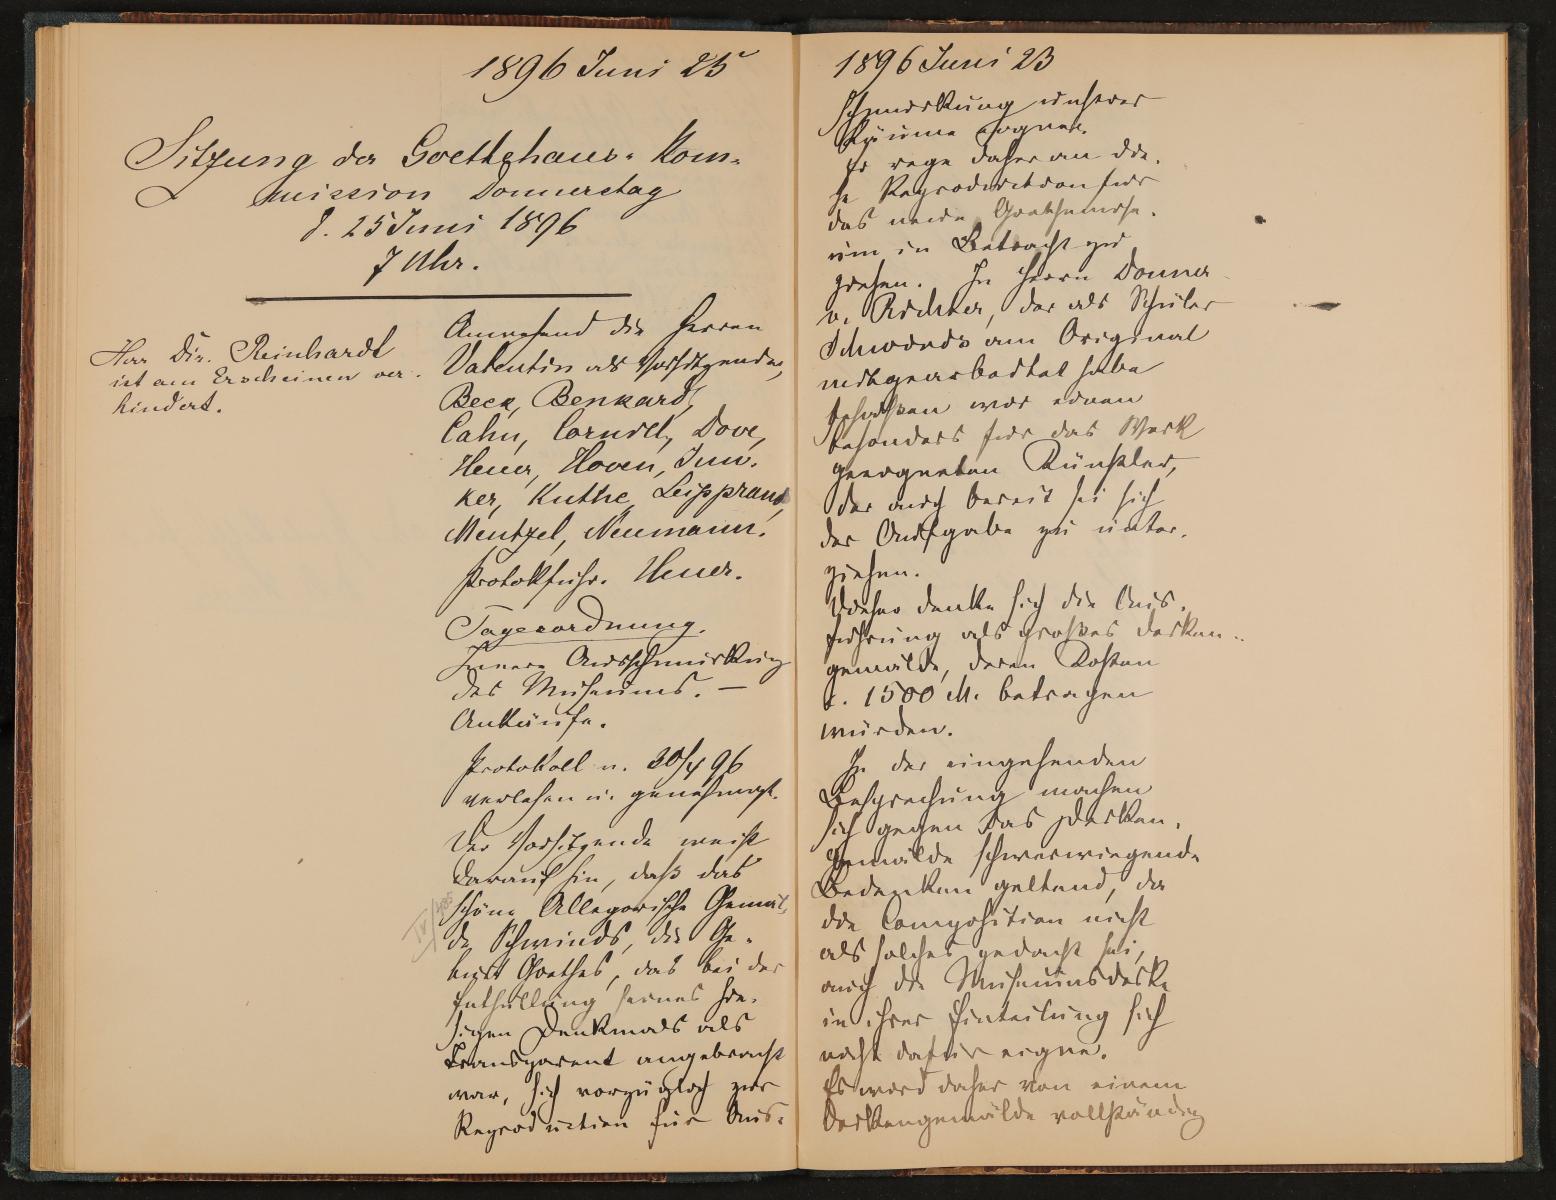 1896 Juni 25
Sitzung der Goethehaus-Kom-
mission Donnerstag
d. 25 Juni 1896
7 Uhr.
Herr Dir. Reinhardt
ist am Erscheinen ver-
hindert.
Anwesend die Herren
Valentin als Vorsitzender,
Beck, Benkard,
Cahn, Cornill, Dove,
Heuer, Hoven, Jun-
ker, Kuthe, Leipprand,
Mentzel, Neumann.
Protokführ. Heuer.
Tagesordnung.
Innere Ausschmückung
des Museums. —
Ankäufe.
Protokoll v. 30/4 96
verlesen u. genehmigt.
Der Vorsitzende weist
darauf hin, daß das
schöne Allegorische Gemäl-
de Schwinds, die Ge-
burt Goethes, das bei der
Enthüllung seines hie-
sigen Denkmals als
Transparent angebracht
war, sich vorzüglich zur
Reproduction für Aus-
1896 Juni 23
schmückung unserer
Räume eigne.
Er rege daher an die-
se Reproduction für
das neue Goethemuse-
um in Betracht zu
ziehen. In Herrn Donner
v. Richter, der als Schüler
Schwinds am Original
mitgearbeitet habe
besässen wir einen
besonders für das Werk
geeigneten Künstler,
der auch bereit sei sich
der Aufgabe zu unter-
ziehen.
Dieser denke sich die Aus-
führung als großes Decken-
gemälde, deren Kosten
c. 1500 M. betragen
würden.
In der eingehenden
Besprechung machen
sich gegen das Decken-
gemälde schwerwiegende
Bedenken geltend, da
die Composition nicht
als solches gedacht sei,
auch die Museumsdecke
in ihrer Einteilung sich
nicht dafür eigne.
Es wird daher von einem
Deckengemälde vollständig